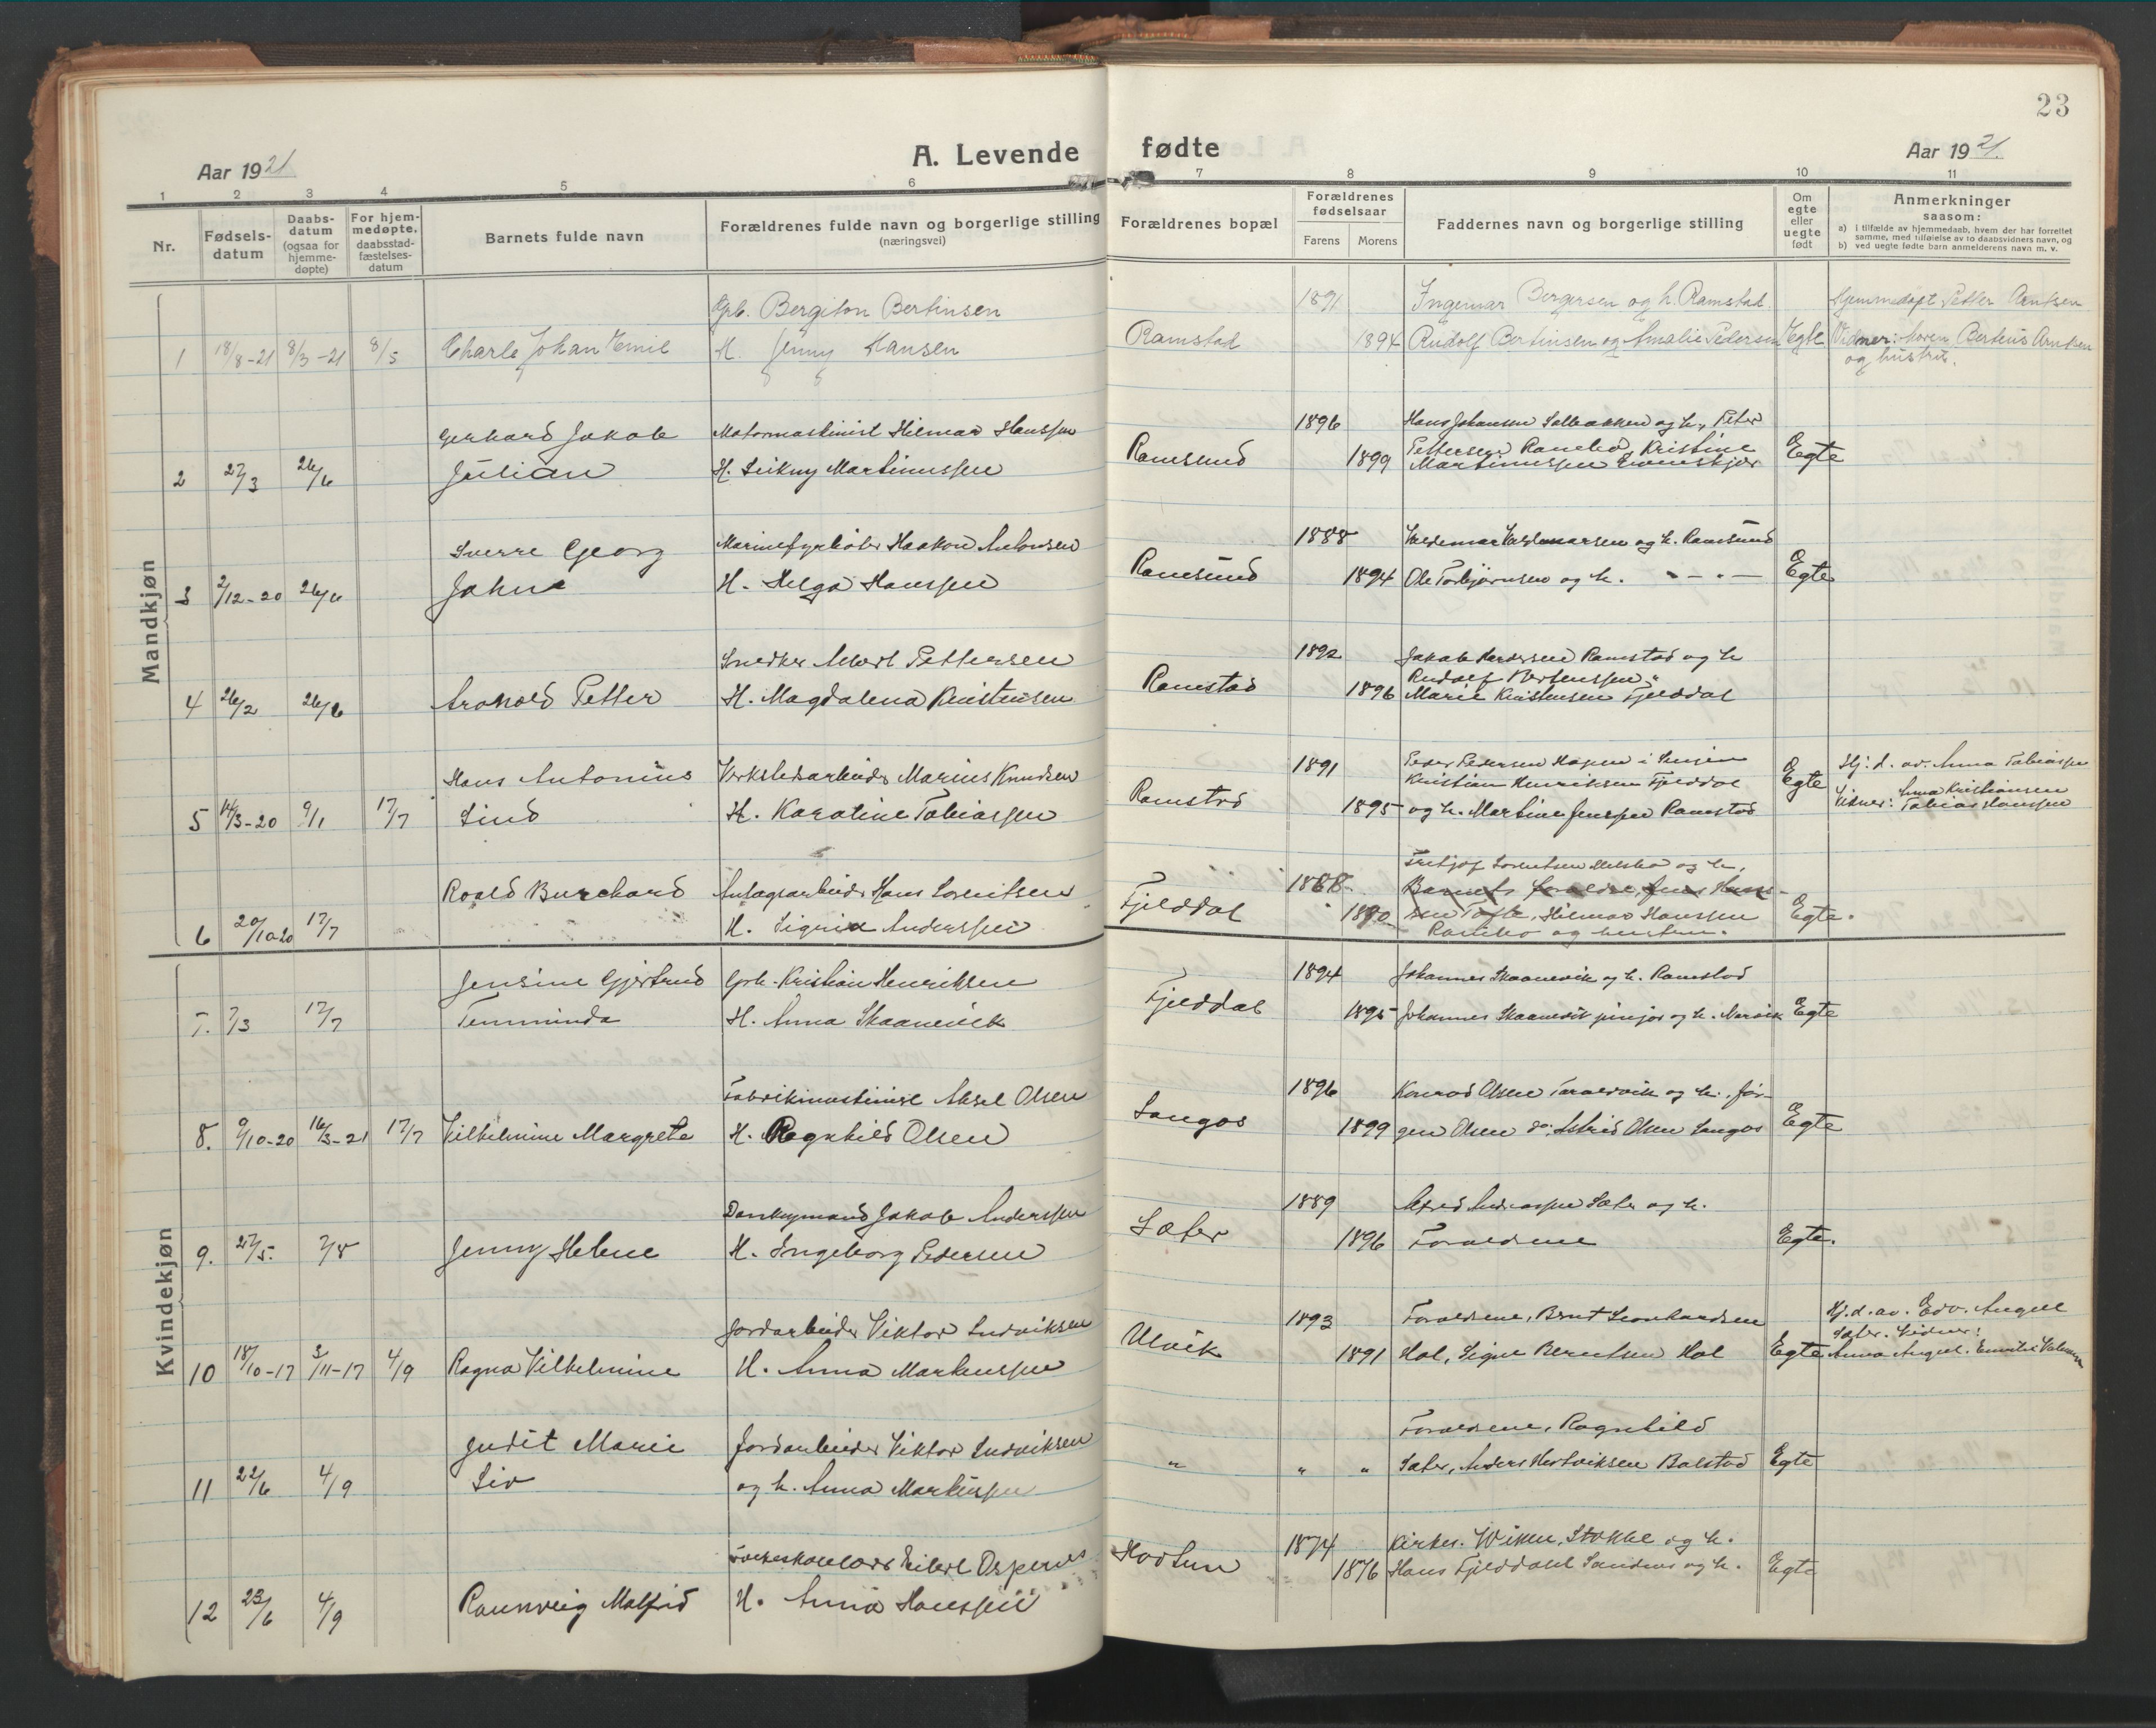 23
A. Levende fødte
Aar 1921
Aar 1921.
1 2 3 4 5 6 7 8 9 10 11
Nr.
Fødsels-datum
Daabs-datum (ogsaa for hjemme-døpte)
For hjem-medøpte, daabsstad-fæstelses-datum
Barnets fulde navn
Forældrenes fulde navn og borgerlige stilling (næringsvei)
Forældrenes bopæl
Forældrenes fødselsaar
Farens
Morens
Faddernes navn og borgerlige stilling
Om egte eller uegte født
Anmerkninger
saasom:
a) i tilfælde av hjemmedaab, hvem der har forrettet samme, med tilføielse av to daabsvidners navn, og
b) ved uegte fødte barn anmelderens navn m. v.
Mandkjøn
Grb. Bergiton Bertinsen 1891 Ingemar Bergersen og h. Ramstad. Hjemmedøpt Petter Arntsen
1 18/8-21 8/3-21 8/5 Charle Johan Emil H. Jenny Hansen Ramstad 1894 Rudolf Bertinsen og Amalie Pedersen Egte Vidner: Moren, Berteus Arntsen
og hustru.
Gerhard Jakob Motormaskinist Hilmar Hanssen 1896 Hans Johansen Solbakken og h., Peter
Pettersen Rambø, Kristine
2 27/3 26/6 Julian H. Martinussen Ramsund 1899 Martinussen Egte
Sverre Georg Marinefyrbøter Haakon Antonsen 1888 Valdemar Valdemarsen og h. Ramsund
3 2/12-20 26/6 Johne H. Helga Hanssen Ramsund 1894 Ole Torbjørnsen og h. " - " - Egte
Snedker Albert Pettersen 1892 Jakob Pedersen Ramstad og h
Rudolf Bertinssen "
4 26/2 26/6 Arnhold Petter H. Magdalena Kristensen Ramstad 1896 Marie Kristensen Fjelddal
Hans Antonius Verkstedsarbeider Marius Knudsen 1891 Peder Pedersen i Senjen Egte Hj. d. av. Anna Tobiassen
Kristian Henriksen Fjelddal Anna Kristiansen
5 14/3-20 9/1 17/7 Lind H. Karoline Tobiassen Ramstad 1895 og h. Martine Jenssen Ramstad Vidner: Tobias Hanssen
Fritjof Lorentsen og h,
Roald Burchard Anlægsarbeider Hans Lorentsen 1888 Barnets forældre, Jens Hans-
6 20/10-20 17/7 H. Sigrid Anderssen Fjelddal 1890 sen Tofte, Hilmar Hanssen Egte.
Rambø og hustru.
Kvindekjøn
Jensine Gjertrud Grb. Kristian Henriksen 1894 Johannes Skaanevik og h. Ramstad
7. 7/3 17/7 Temminda H. Anna Skaanevik Fjelddal 1895 Johannes Skaanevik junior og h. Narvik Egte
Fabrikmaskinist Aksel Olsen 1896 Konrad Olsen Taraldvik og h., Jør-
8. 9/10-20 16/3-21 17/7 Vilhelmine Margrete H. Ragnhild Olsen Sangos 1899 gen Olsen do, Astrid Olsen Sangos Egte
Donkeymand Jakob Anderssen 1889 Alfred Andreassen Sæter og h.
9. 27/5. 7/8 Jenny Helene H. Ingeborg Pedersen Sæter 1896 Forældrene Egte.
Jordarbeider Viktor Ludviksen 1893 Forældrene, Bernt Leonhardsen Hj. d. av. Edv. August
Sæter. Vidner:
10 18/10-17 3/11-17 4/9 Ragna Vilhelmine H. Anna Markussen Ulvik 1891 Hol, Signe Berntsen Hol Egte Anna August. Emilie
Judit Marie Jordarbeider Viktor Ludviksen Forældrene, Ragnhild
11 22/6 4/9 Liv og h. Anna Markussen " " " Sæter, Anders Hertviksen Balstad Egte
Folkeskolelærer Eilert Ospenes 1874 Kirkes. Wiken, Stokke og h.
12 23/6 4/9 Raunveig Malfrid H. Anna Hanssen 1876 Hans Fjelddahl Sandnes og h. Egte